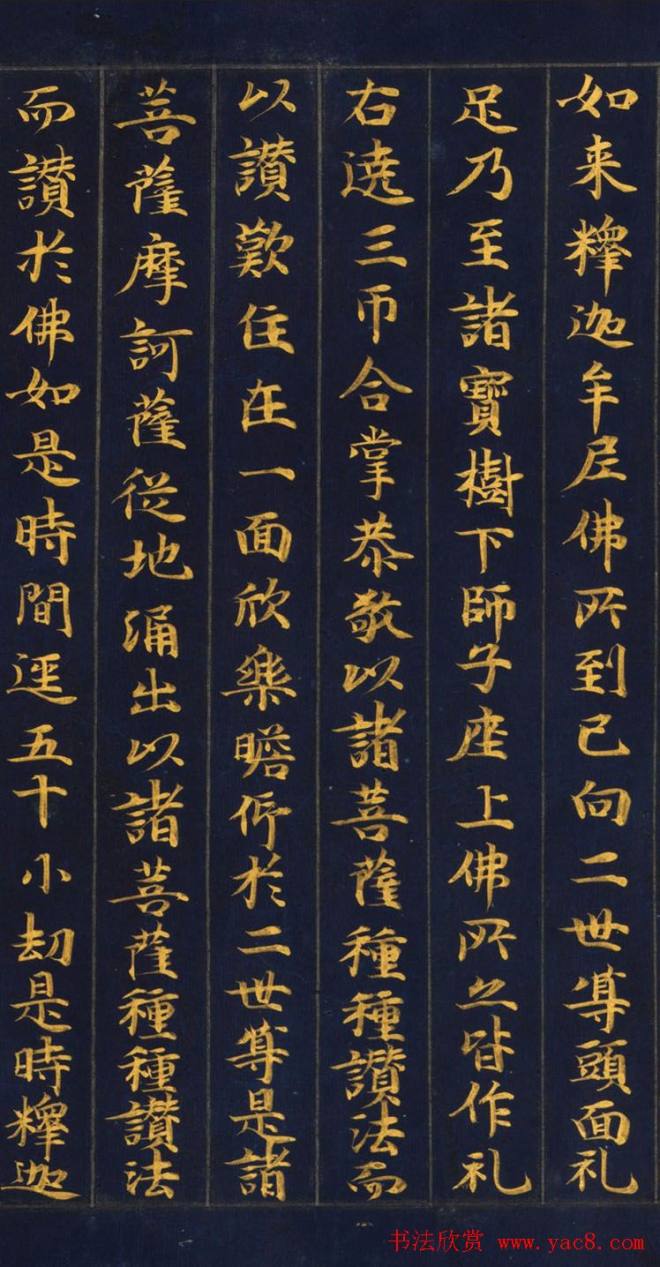 如来釋迦牟尼佛所到已向二世尊頭面礼
足乃至諸寶樹下師子座上佛所亦皆作礼
右遶三帀合掌恭敬以諸菩薩種種讃法而
以讃歎住在一面欣樂瞻仰於二世尊是諸
菩薩摩訶薩從地涌出以諸菩薩種種讃法
而讃於佛如是時間逕五十小劫是時釋迦
书法欣赏 www.yac8.com